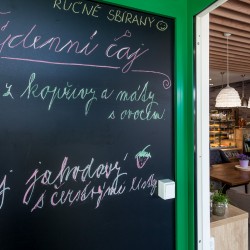 RUČNĚ SBÍRANÝ ☺
ýdenní čaj
z kopřivy a máty
s ovocem
j jahodový
s čerstvými lístky